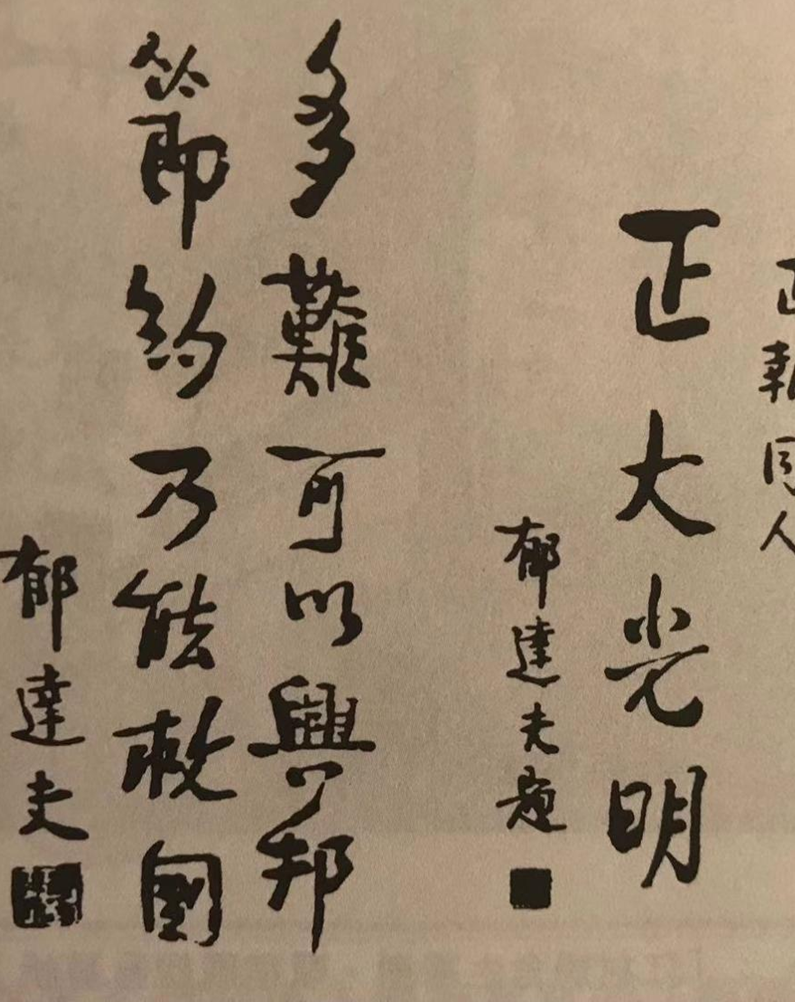 正報同人
正大光明
郁達夫題
多難可以興邦
節約乃能救國
郁達夫